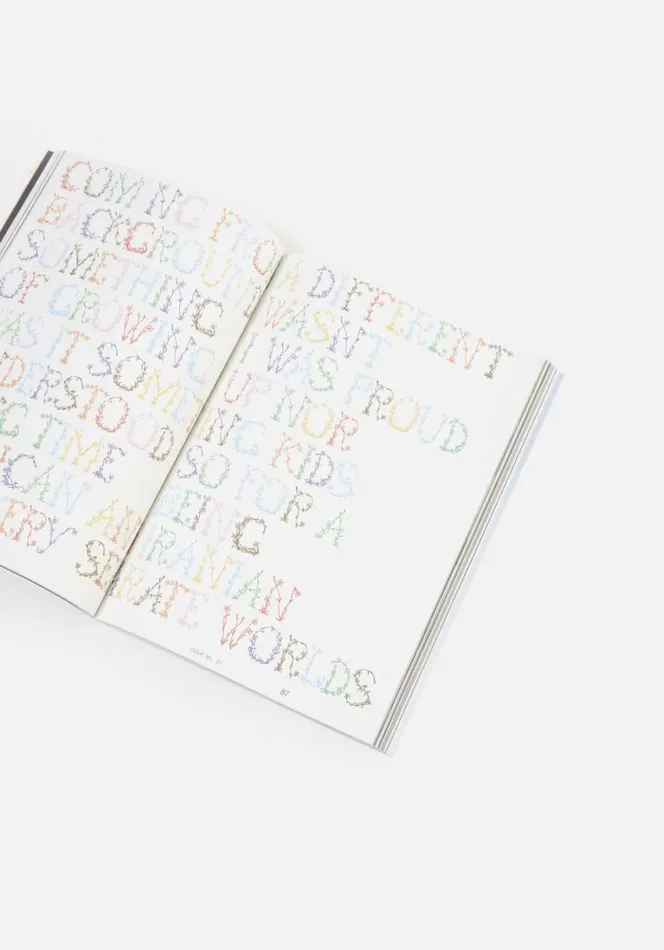 COMING FRO A DIFFERENT
BACKGROUN WASN'T
SOMETHING I WAS PROUD
OF GROWING UP NOR
WAS IT SOME NG KIDS
DERSTOOD SO FOR A
G TIME BEING
ICAN AN IRANIAN
ERY SE RATE WORLDS
87